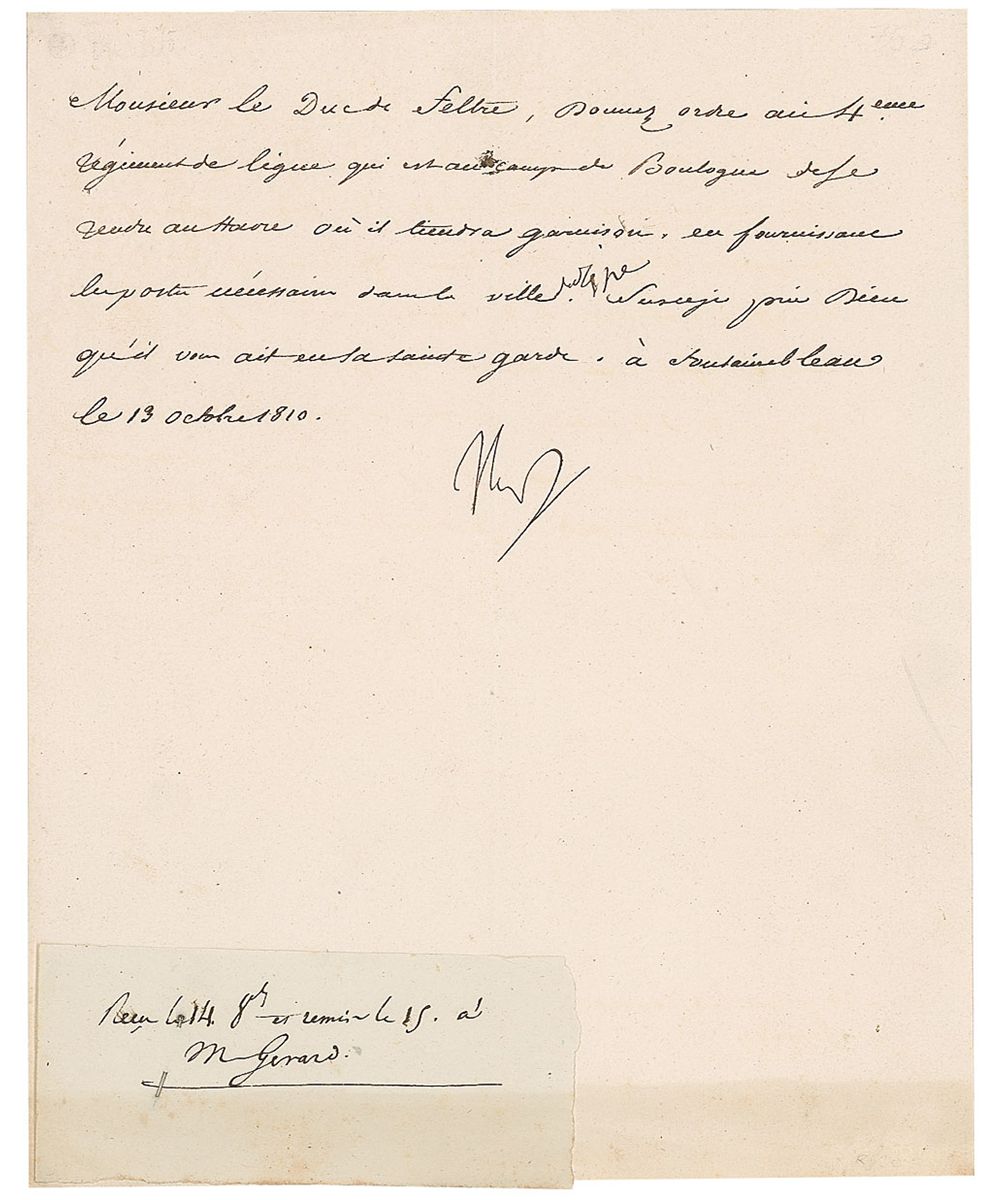 Monsieur le Duc de Feltre, Donnez ordre au 4eme
régiment de ligne qui est au camp de Boulogne de se
rendre au Havre où il tiendra garnison, en fournissant
les postes nécessaires dans la ville. Sur ce je prie Dieu
qu'il vous ait en sa sainte garde. à Fontainebleau
le 13 octobre 1810.
Reçu le 14. 8bre et remis le 15. à
M Gerard.